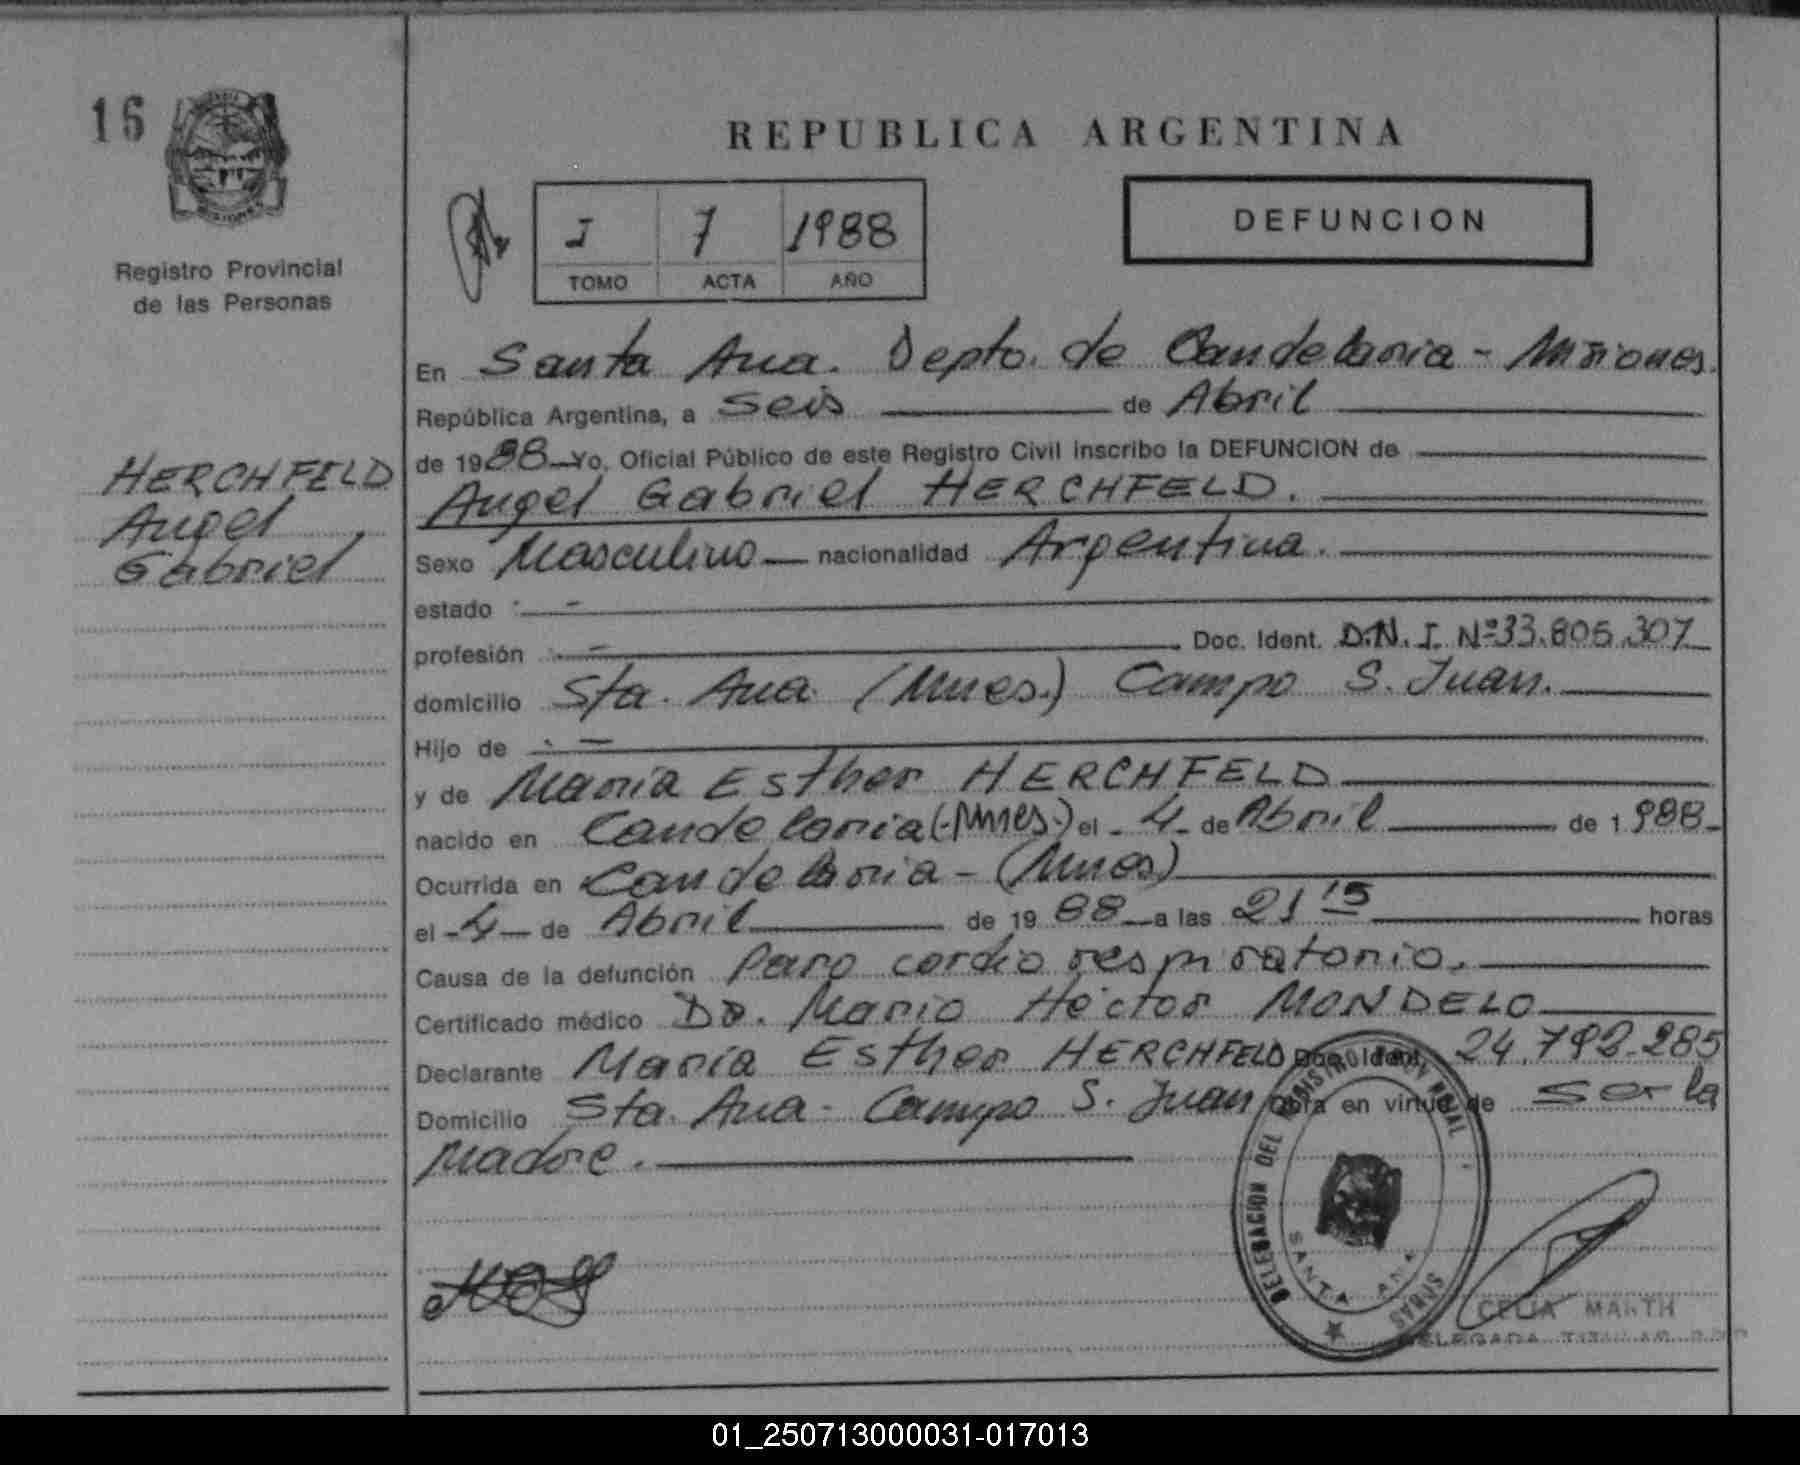 16
REPUBLICA ARGENTINA
DEFUNCION
I 7 1988
TOMO ACTA AÑO
Registro Provincial
de las Personas
HERCHFELD
Angel
Gabriel
En Santa Ana. Depto. de Candelaria - Misiones.
República Argentina, a Seis de Abril
de 1988 Yo, Oficial Público de este Registro Civil inscribo la DEFUNCION de
Angel Gabriel HERCHFELD.
Sexo Masculino nacionalidad Argentina.
estado -
profesión - Doc. Ident. D.N.I. Nº 33.805.307
domicilio Sta. Ana (Mnes.) Campo S. Juan.
Hijo de -
y de María Esther HERCHFELD
nacido en Candelaria (Mnes.) el -4- de Abril de 1988-
Ocurrida en Candelaria - (Mnes)
el -4- de Abril de 1988 a las 21 15 horas
Causa de la defunción Paro cardio respiratorio.
Certificado médico Dr. Mario Héctor MONDELO
Declarante María Esther HERCHFELD Doc. Ident. 24.792.285
Domicilio Sta. Ana - Campo S. Juan Obra en virtud de ser la
Madre.
DELEGACION DEL REGISTRO PROVINCIAL
SANTA ANA
CELIA MARTH
DELEGADA TITULAR
01_250713000031-017013